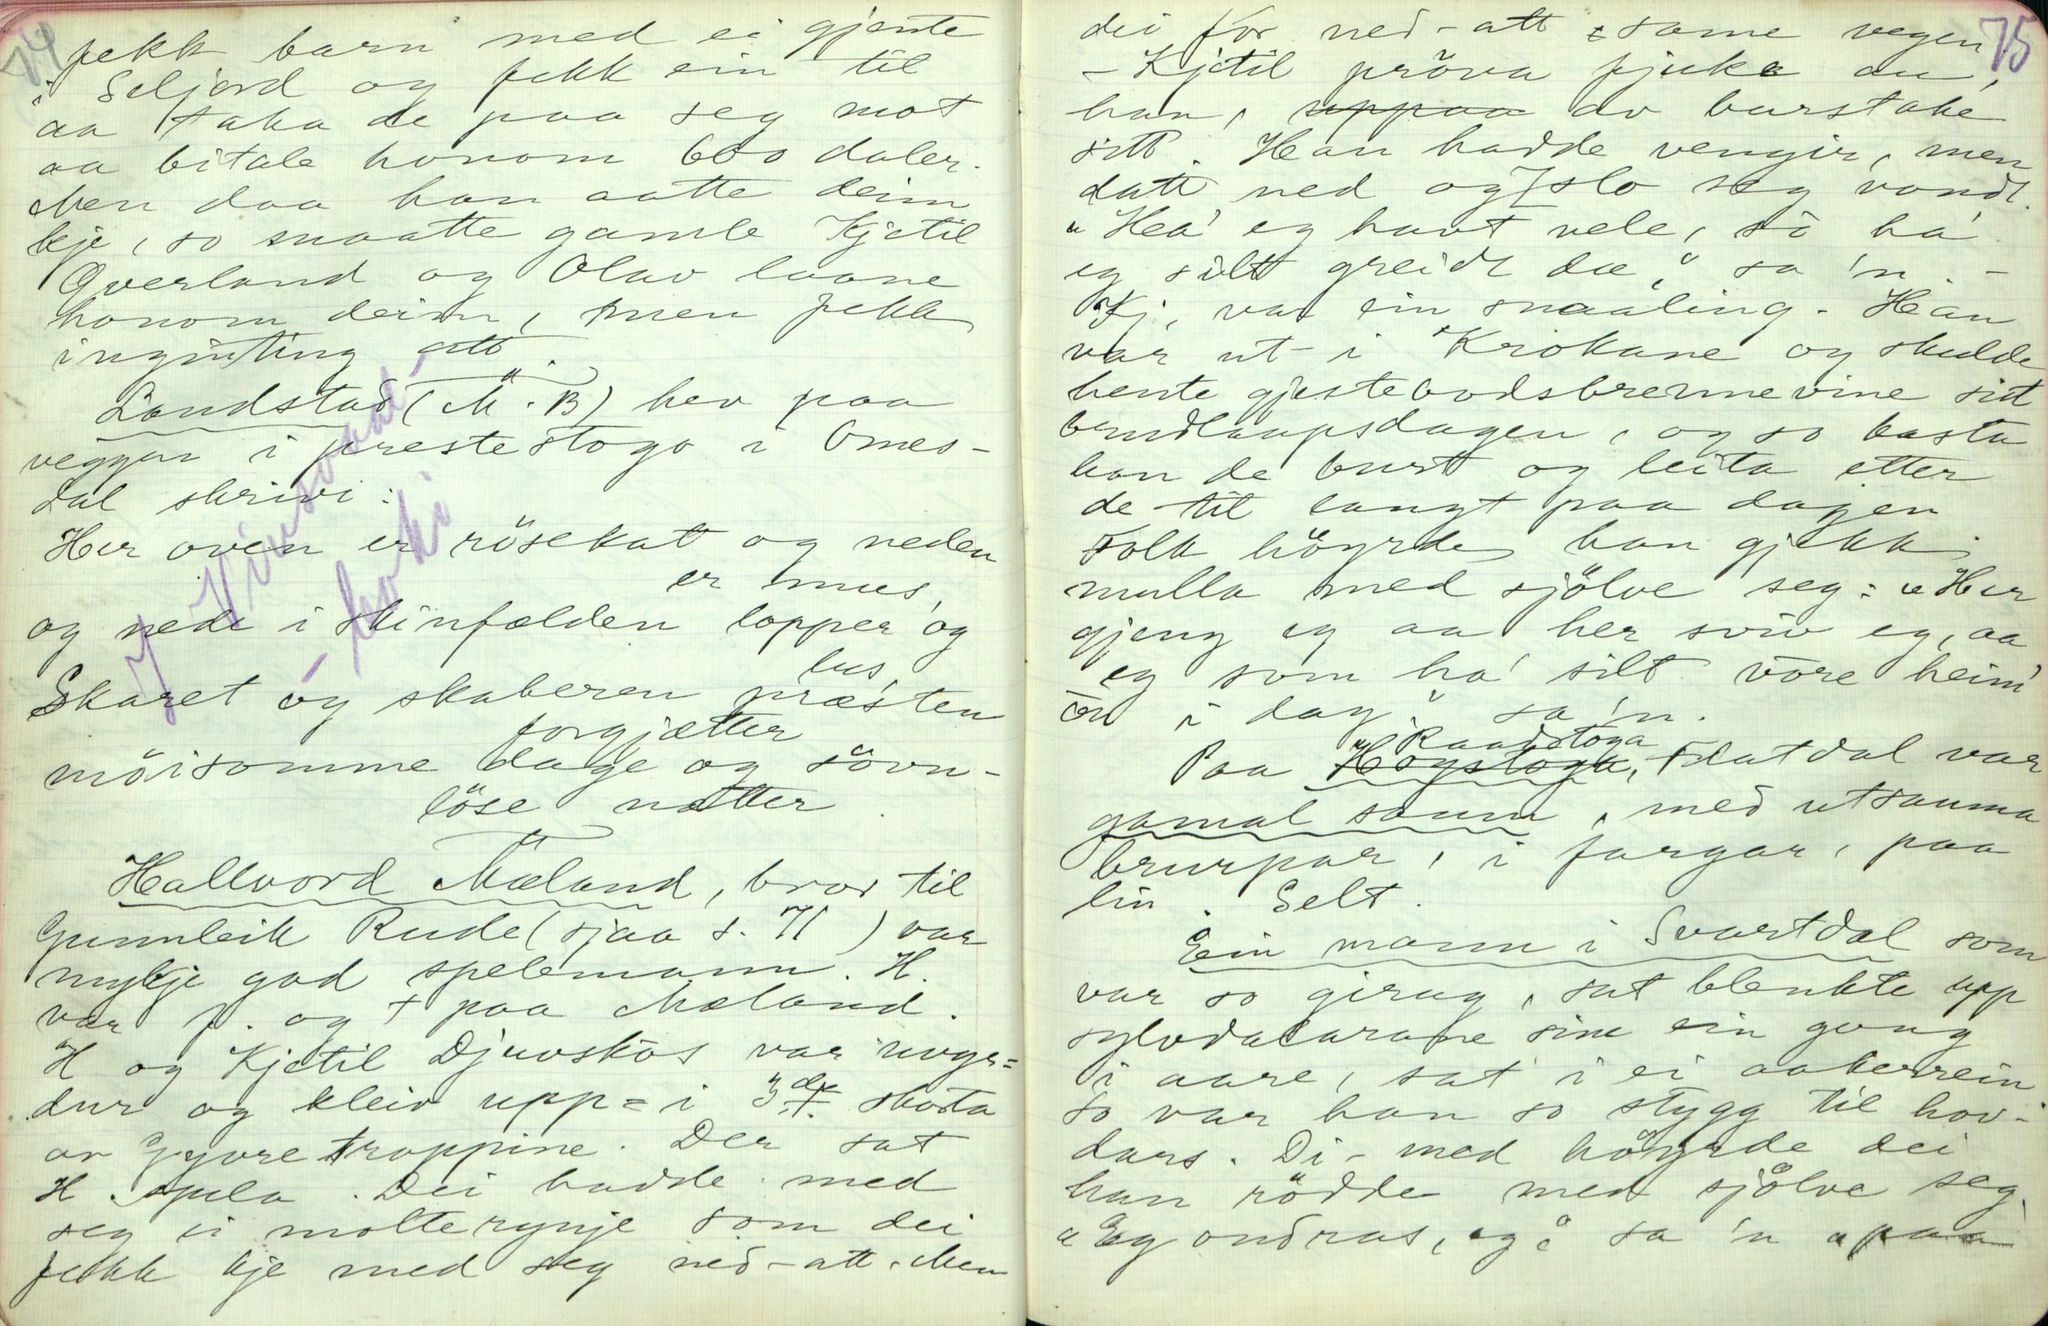 74
fekk barn med ei gjente
i Seljord og fekk ein til
aa taka de paa seg mot
aa bitale honom 600 daler.
Men daa han aatte deim
kje, so maatte gamle Kjetil
Overland og Olav laane
honom deim, men fekk
ingjinting att.
Landstad (M. B) hev paa
veggen i prestestogo i Omes-
dal skrivi:
Her oven er röskat og neden
er mus,
og nede i skinfælden lopper og
lus
Skaret og skaberen præsten
forgjætter
möisomme dage og sövn-
löse nætter.
Hallvord Mæland, bror til
Gunnleik Rude (sjaa s. 71) var
mykje god spelemann. H.
var f. og + paa Mæland.
H og Kjetil Djuvskos var uvyr=
dur og kleiv upp= i 3dje skota
av Gyvretroppine. Der sat
H spela. Dei hadde med
seg ei moltekynje som dei
fekk kje med seg ned-att. Men
75
dei for ned-att same vegen
- Kjetil pröva fjuka au,
han, uppaa av burstake
sitt. Han hadde vengir, men
datt ned og slo seg vondt.
"Ha' eg havt vele, så ha'
eg silt greidt dæ", sa 'n. -
Kj. var ein snaaling. Han
var ut-i Krokane og skulde
hente gjestebodsbrennevine sitt
brudlaupsdagen, og so kasta
han de burt og leita etter
de til langt paa dagen
Folk höyrde han gjekk
mulla med sjölve seg: "Her
gjeng eg aa her sviv eg, aa
eg som ha' silt vore heim'
i dag" sa 'n.
Raadstoga
Paa Högstoga, Flatdal var
gamal saum, med utsauma
brurpar, i fargar, paa
lin. Selt.
Ein mann i Svartdal som
var so girug, sat blenkte upp
sylvdalarane sine ein gong
i aare, sat i ei aakerrein
So var han so stygg til hov-
dars. Di-med höyrde dei
han rödde med sjölve seg
"Eg ondras, eg", sa 'n "paa